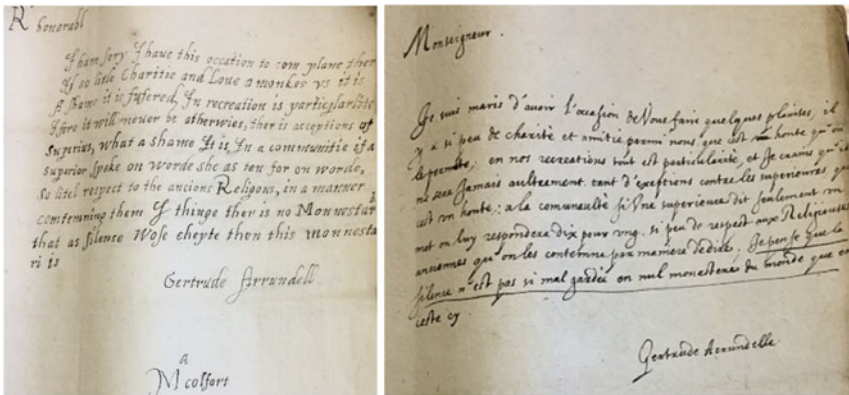 R honorabl
I ham sory I haue this occation to com plane ther
If so litle Charitie and Loue amonkes vs it is
A shame it is fufered, In recreation is particglarlite
I fere it will neuer be otherwies, ther is acceptions of
Superirs, what a shame It is, In a communitie if a
superior spoke on worde she as ten for on worde,
so litel respect to the ancions Religous, in a manner
comtemning them I thinge ther is no Monnestari
that as silence Wose chepte then this monnesta
ri is
Gertrude Arrundell
a
M colfort
Monseigneur.
Je suis maris d'avoir l'occasion de Vous faire quelques plaintes, il
y a si peu de charité et amitié parmi nous, que est honte qu'on
le permette, en nos recreations tout est particularité, et Je crains qu'il
ne sera Jamais aultrement. tant d'exeptions contre les superieures, que
c'est vn honte: a la comunaulté si Vne superieure dit seulement vn
mot on luy respondera dix pour vng. si peu de respect aux Religieuses
anciennes qu'on les contemne par maniere de dire. Je pense que la
silence n'est pas si mal gardée en nul monastere du monde que en
ceste cy.
Gertrude Aerundelle.